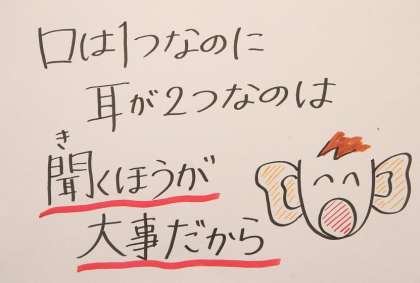 口は1つなのに
耳が2つなのは
き
聞くほうが
大事だから